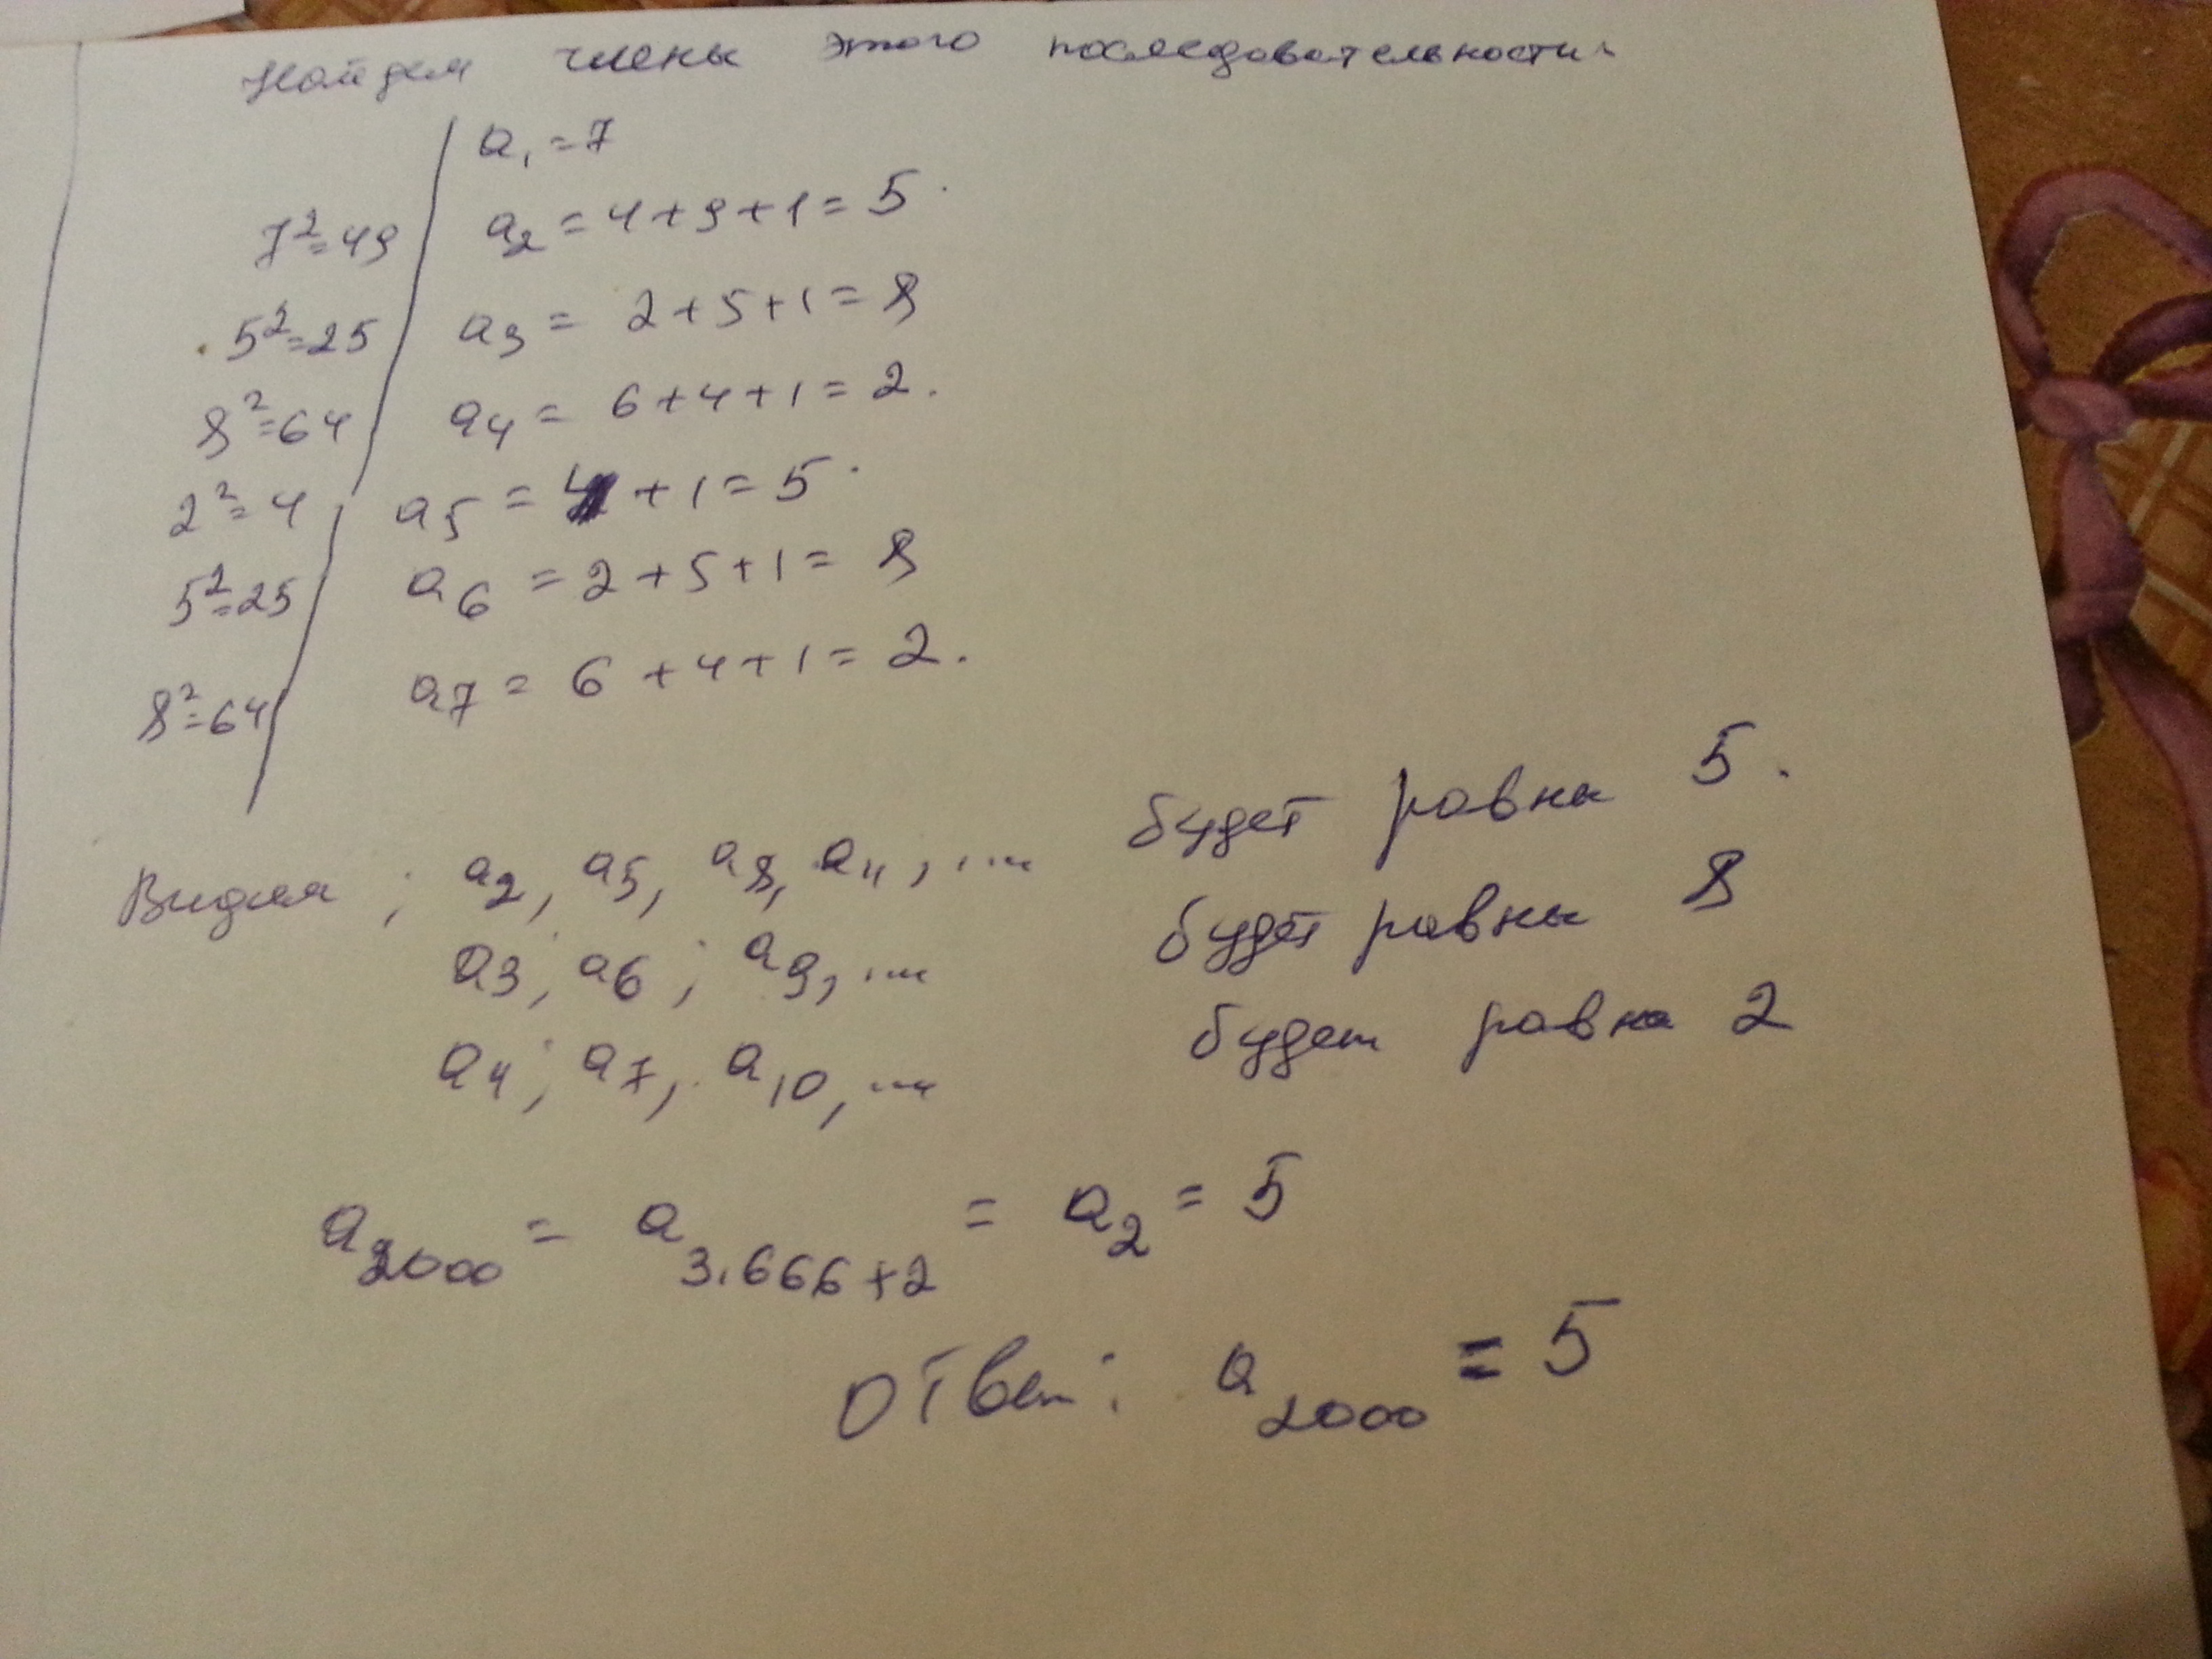 Найдем члены этого последовательности.
a₁ = 7
7² = 49 a₂ = 4 + 9 + 1 = 5.
5² = 25 a₃ = 2 + 5 + 1 = 8
8² = 64 a₄ = 6 + 4 + 1 = 2.
2² = 4 a₅ = 4 + 1 = 5.
5² = 25 a₆ = 2 + 5 + 1 = 8
8² = 64 a₇ = 6 + 4 + 1 = 2.
Видим ; a₂, a₅, a₈, a₁₁, ... будет равна 5.
a₃; a₆; a₉, ... будет равны 8
a₄; a₇, a₁₀, ... будет равна 2
a₂₀₀₀ = a₃.₆₆₆₊₂ = a₂ = 5
Ответ: a₂₀₀₀ = 5